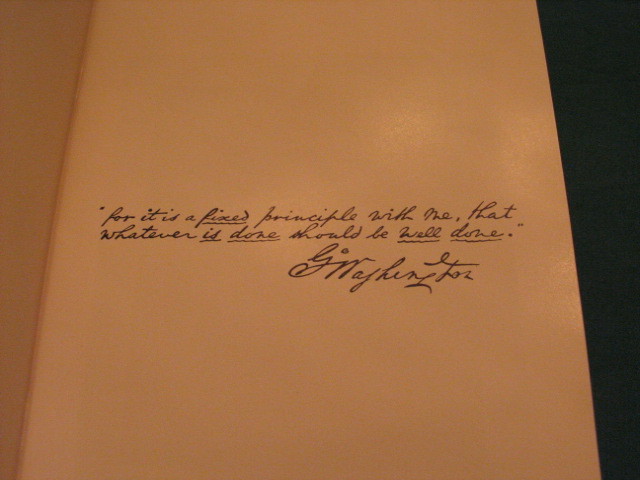 "for it is a fixed principle with me, that
whatever is done should be well done."
G°Washington